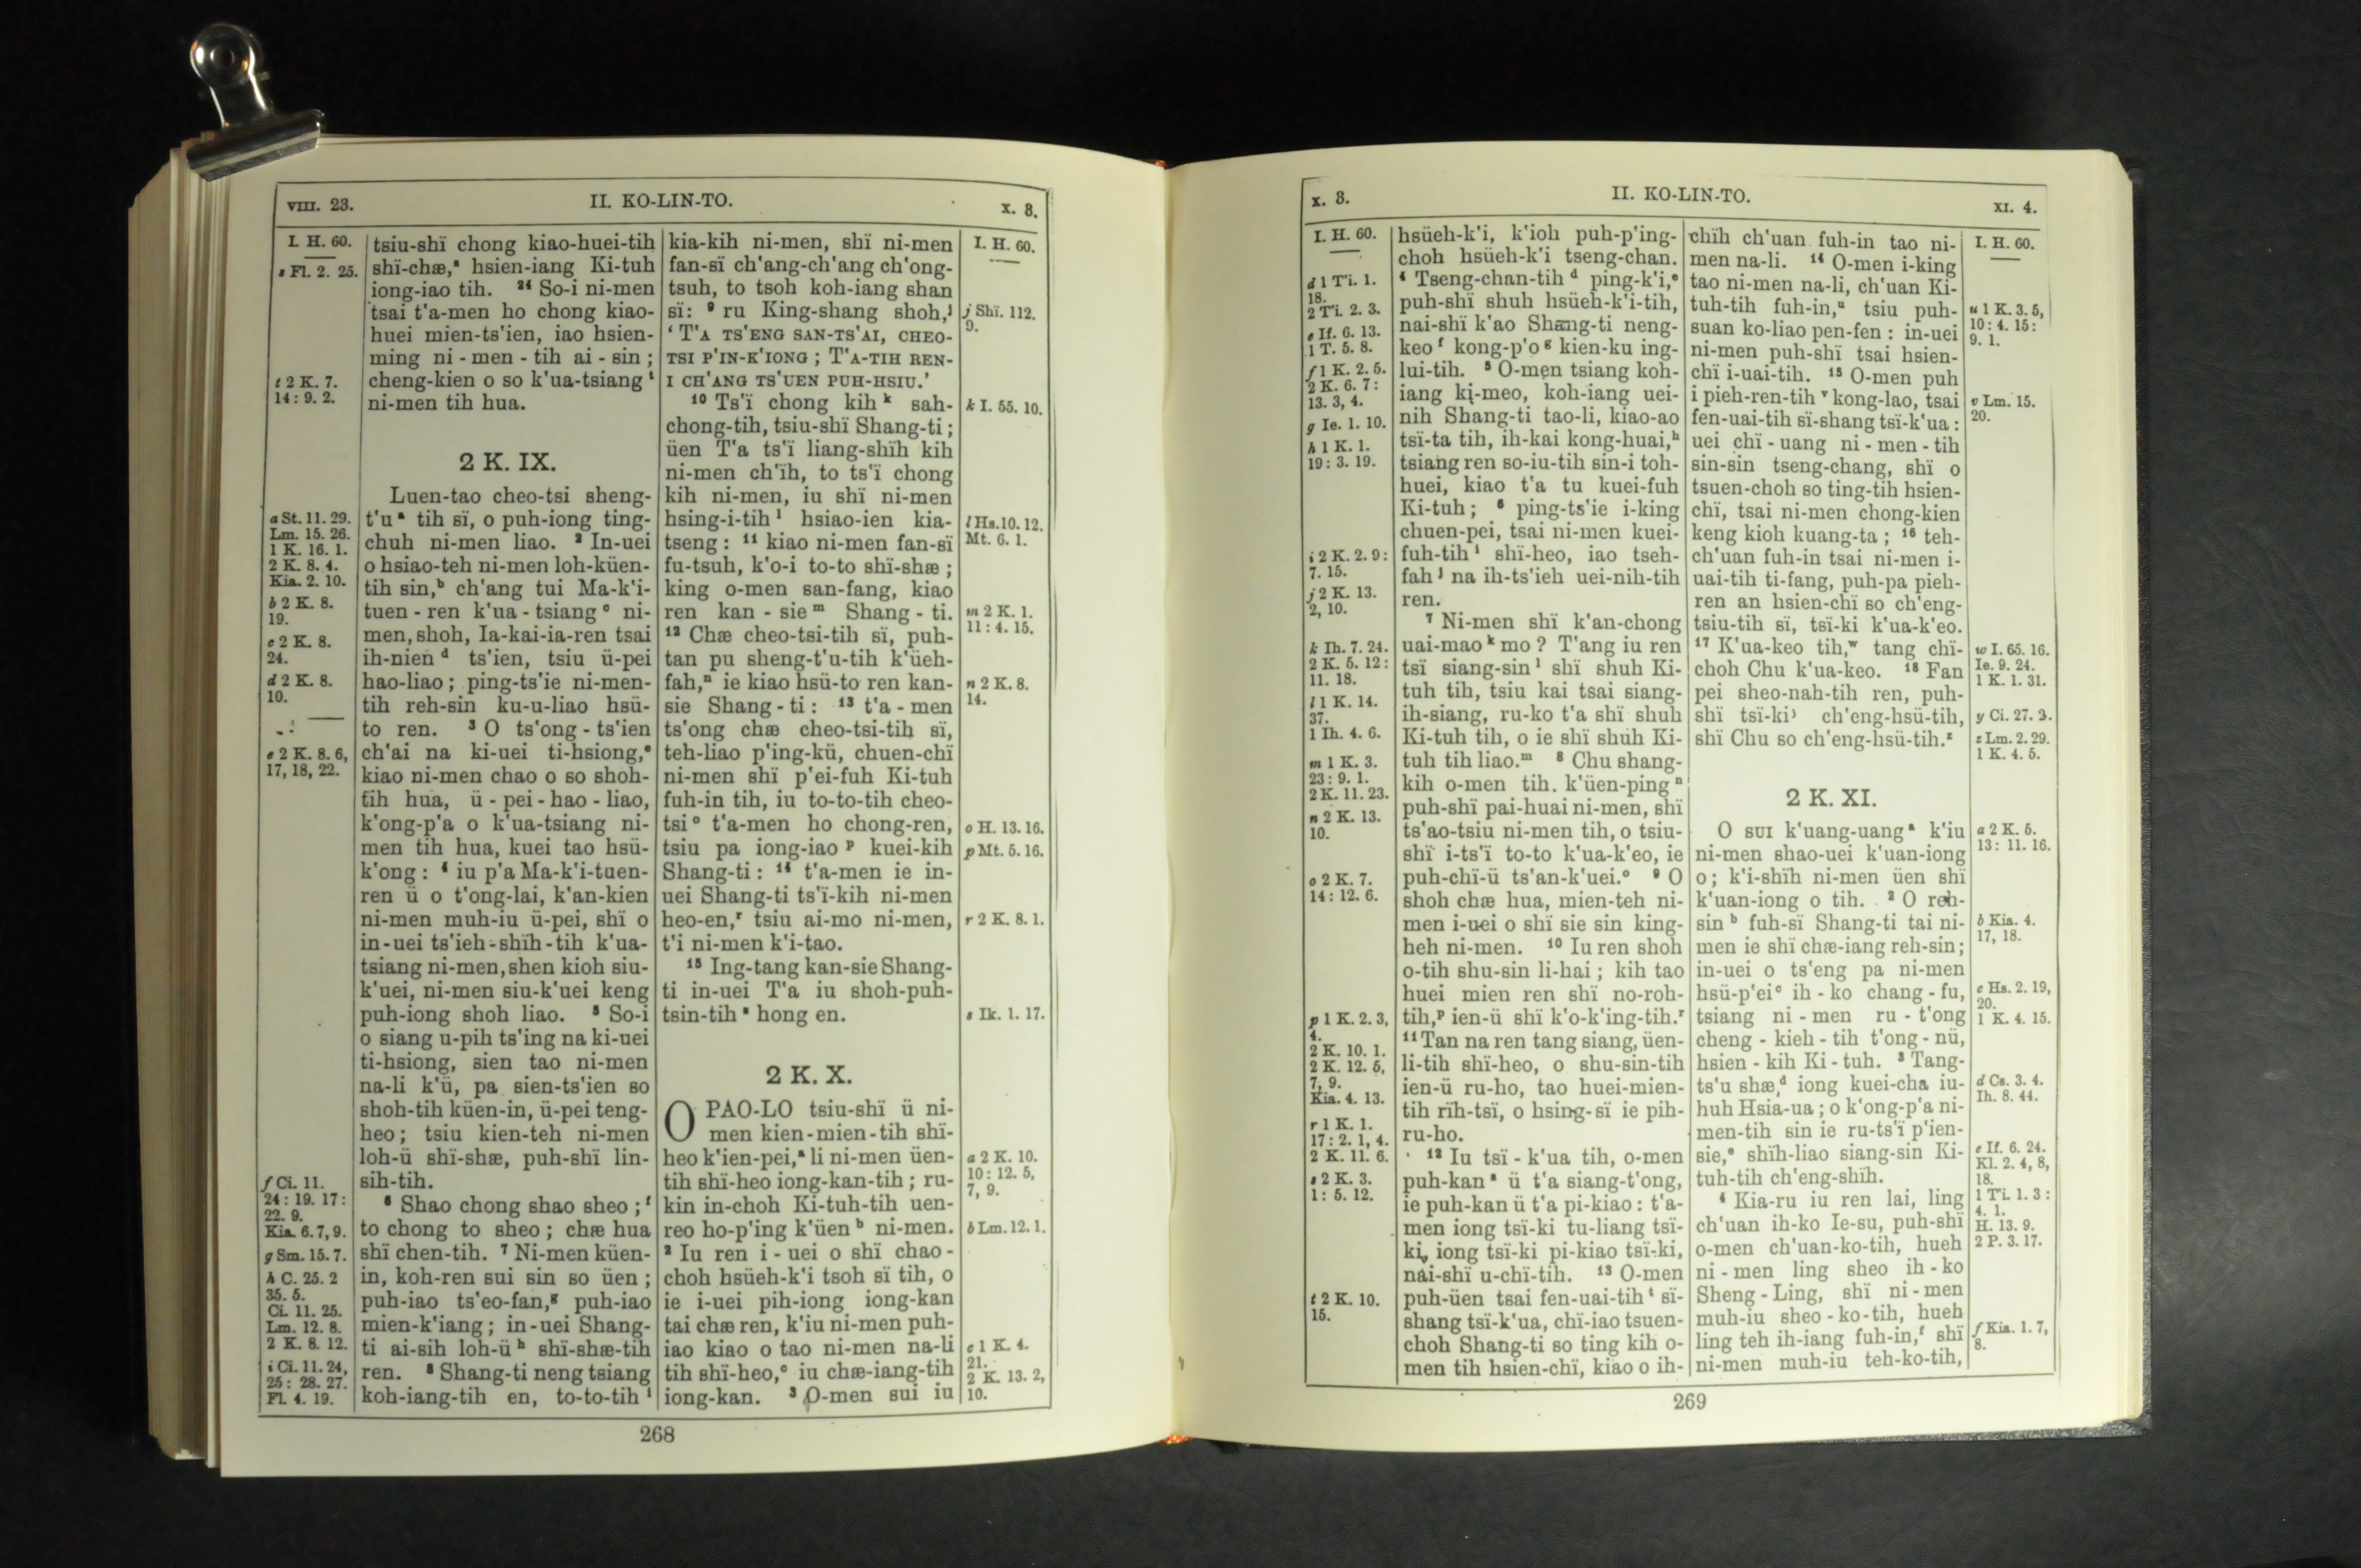 VIII. 23.
II. KO-LIN-TO.
X. 3.
I. H. 60.
s Fl. 2. 25.
t 2 K. 7.
14: 9. 2.
a St. 11. 29.
Lm. 15. 26.
1 K. 16. 1.
2 K. 8. 4.
Kia. 2. 10.
b 2 K. 8.
19.
c 2 K. 8.
24.
d 2 K. 8.
10.
e 2 K. 8. 6,
17, 18, 22.
f Ci. 11.
24: 19. 17:
22. 9.
Kia. 6. 7, 9.
g Sm. 15. 7.
h C. 25. 2
35. 5.
Ci. 11. 25.
Lm. 12. 8.
2 K. 8. 12.
i Ci. 11. 24,
25: 28. 27.
Fl. 4. 19.
tsiu-shï chong kiao-huei-tih
shï-chæ,ˢ hsien-iang Ki-tuh
iong-iao tih. ²⁴ So-i ni-men
tsai t'a-men ho chong kiao-
huei mien-ts'ien, iao hsien-
ming ni-men-tih ai-sin;
cheng-kien o so k'ua-tsiangᵗ
ni-men tih hua.
2 K. IX.
Luen-tao cheo-tsi sheng-
t'uᵃ tih sï, o puh-iong ting-
chuh ni-men liao. ² In-uei
o hsiao-teh ni-men loh-küen-
tih sin,ᵇ ch'ang tui Ma-k'i-
tuen-ren k'ua-tsiangᶜ ni-
men, shoh, Ia-kai-ia-ren tsai
ih-nienᵈ ts'ien, tsiu ü-pei
hao-liao; ping-ts'ie ni-men-
tih reh-sin ku-u-liao hsü-
to ren. ³ O ts'ong-ts'ien
ch'ai na ki-uei ti-hsiong,ᵉ
kiao ni-men chao o so shoh-
tih hua, ü-pei-hao-liao,
k'ong-p'a o k'ua-tsiang ni-
men tih hua, kuei tao hsü-
k'ong: ⁴ iu p'a Ma-k'i-tuen-
ren ü o t'ong-lai, k'an-kien
ni-men muh-iu ü-pei, shï o
in-uei ts'ieh-shïh-tih k'ua-
tsiang ni-men, shen kioh siu-
k'uei, ni-men siu-k'uei keng
puh-iong shoh liao. ⁵ So-i
o siang u-pih ts'ing na ki-uei
ti-hsiong, sien tao ni-men
na-li k'ü, pa sien-ts'ien so
shoh-tih küen-in, ü-pei teng-
heo; tsiu kien-teh ni-men
loh-ü shï-shæ, puh-shï lin-
sih-tih.
⁶ Shao chong shao sheo;ᶠ
to chong to sheo; chæ hua
shï chen-tih. ⁷ Ni-men küen-
in, koh-ren sui sin so üen;
puh-iao ts'eo-fan,ᵍ puh-iao
mien-k'iang; in-uei Shang-
ti ai-sih loh-üʰ shï-shæ-tih
ren. ⁸ Shang-ti neng tsiang
koh-iang-tih en, to-to-tihⁱ
kia-kih ni-men, shï ni-men
fan-sï ch'ang-ch'ang ch'ong-
tsuh, to tsoh koh-iang shan
sï: ⁹ ru King-shang shoh,ʲ
‘T'A TS'ENG SAN-TS'AI, CHEO-
TSI P'IN-K'IONG; T'A-TIH REN-
I CH'ANG TS'UEN PUH-HSIU.’
¹⁰ Ts'ï chong kihᵏ sah-
chong-tih, tsiu-shï Shang-ti;
üen T'a ts'ï liang-shïh kih
ni-men ch'ïh, to ts'ï chong
kih ni-men, iu shï ni-men
hsing-i-tihˡ hsiao-ien kia-
tseng: ¹¹ kiao ni-men fan-sï
fu-tsuh, k'o-i to-to shï-shæ;
king o-men san-fang, kiao
ren kan-sieᵐ Shang-ti.
¹² Chæ cheo-tsi-tih sï, puh-
tan pu sheng-t'u-tih k'üeh-
fah,ⁿ ie kiao hsü-to ren kan-
sie Shang-ti: ¹³ t'a-men
ts'ong chæ cheo-tsi-tih sï,
teh-liao p'ing-kü, chuen-chï
ni-men shï p'ei-fuh Ki-tuh
fuh-in tih, iu to-to-tih cheo-
tsiᵒ t'a-men ho chong-ren,
tsiu pa iong-iaoᵖ kuei-kih
Shang-ti: ¹⁴ t'a-men ie in-
uei Shang-ti ts'ï-kih ni-men
heo-en,ʳ tsiu ai-mo ni-men,
t'i ni-men k'i-tao.
¹⁵ Ing-tang kan-sie Shang-
ti in-uei T'a iu shoh-puh-
tsin-tihˢ hong en.
2 K. X.
O PAO-LO tsiu-shï ü ni-
men kien-mien-tih shï-
heo k'ien-pei,ᵃ li ni-men üen-
tih shï-heo iong-kan-tih; ru-
kin in-choh Ki-tuh-tih uen-
reo ho-p'ing k'üenᵇ ni-men.
² Iu ren i-uei o shï chao-
choh hsüeh-k'i tsoh sï tih, o
ie i-uei pih-iong iong-kan
tai chæ ren, k'iu ni-men puh-
iao kiao o tao ni-men na-li
tih shï-heo,ᶜ iu chæ-iang-tih
iong-kan. ³ O-men sui iu
I. H. 60.
j Shï. 112.
9.
k I. 55. 10.
l Hs. 10. 12.
Mt. 6. 1.
m 2 K. 1.
11: 4. 15.
n 2 K. 8.
14.
o H. 13. 16.
p Mt. 5. 16.
r 2 K. 8. 1.
s Ik. 1. 17.
a 2 K. 10.
10: 12. 5,
7, 9.
b Lm. 12. 1.
c 1 K. 4.
21.
2 K. 13. 2,
10.
268
X. 3.
II. KO-LIN-TO.
XI. 4.
I. H. 60.
d 1 Ti. 1.
18.
2 Ti. 2. 3.
e If. 6. 13.
1 T. 5. 8.
f 1 K. 2. 5.
2 K. 6. 7:
13. 3, 4.
g Ie. 1. 10.
h 1 K. 1.
19: 3. 19.
i 2 K. 2. 9:
7. 15.
j 2 K. 13.
2, 10.
k Ih. 7. 24.
2 K. 5. 12:
11. 18.
l 1 K. 14.
37.
1 Ih. 4. 6.
m 1 K. 3.
23: 9. 1.
2 K. 11. 23.
n 2 K. 13.
10.
o 2 K. 7.
14: 12. 6.
p 1 K. 2. 3,
4.
2 K. 10. 1.
2 K. 12. 5,
7, 9.
Kia. 4. 13.
r 1 K. 1.
17: 2. 1, 4.
2 K. 11. 6.
s 2 K. 3.
1: 5. 12.
t 2 K. 10.
15.
hsüeh-k'i, k'ioh puh-p'ing-
choh hsüeh-k'i tseng-chan.
⁴ Tseng-chan-tihᵈ ping-k'i,ᵉ
puh-shï shuh hsüeh-k'i-tih,
nai-shï k'ao Shang-ti neng-
keoᶠ kong-p'oᵍ kien-ku ing-
lui-tih. ⁵ O-men tsiang koh-
iang ki-meo, koh-iang uei-
nih Shang-ti tao-li, kiao-ao
tsï-ta tih, ih-kai kong-huai,ʰ
tsiang ren so-iu-tih sin-i toh-
huei, kiao t'a tu kuei-fuh
Ki-tuh; ⁶ ping-ts'ie i-king
chuen-pei, tsai ni-men kuei-
fuh-tihⁱ shï-heo, iao tseh-
fahʲ na ih-ts'ieh uei-nih-tih
ren.
⁷ Ni-men shï k'an-chong
uai-maoᵏ mo? T'ang iu ren
tsï siang-sinˡ shï shuh Ki-
tuh tih, tsiu kai tsai siang-
ih-siang, ru-ko t'a shï shuh
Ki-tuh tih, o ie shï shuh Ki-
tuh tih liao.ᵐ ⁸ Chu shang-
kih o-men tih k'üen-pingⁿ
puh-shï pai-huai ni-men, shï
ts'ao-tsiu ni-men tih, o tsiu-
shï i-ts'ï to-to k'ua-k'eo, ie
puh-chï-ü ts'an-k'uei.ᵒ ⁹ O
shoh chæ hua, mien-teh ni-
men i-uei o shï sie sin king-
heh ni-men. ¹⁰ Iu ren shoh
o-tih shu-sin li-hai; kih tao
huei mien ren shï no-roh-
tih,ᵖ ien-ü shï k'o-k'ing-tih.ʳ
¹¹ Tan na ren tang siang, üen-
li-tih shï-heo, o shu-sin-tih
ien-ü ru-ho, tao huei-mien-
tih rïh-tsï, o hsing-sï ie pih-
ru-ho.
¹² Iu tsï-k'ua tih, o-men
puh-kanˢ ü t'a siang-t'ong,
ie puh-kan ü t'a pi-kiao: t'a-
men iong tsï-ki tu-liang tsï-
ki, iong tsï-ki pi-kiao tsï-ki,
nai-shï u-chï-tih. ¹³ O-men
puh-üen tsai fen-uai-tihᵗ sï-
shang tsï-k'ua, chï-iao tsuen-
choh Shang-ti so ting kih o-
men tih hsien-chï, kiao o ih-
chïh ch'uan fuh-in tao ni-
men na-li. ¹⁴ O-men i-king
tao ni-men na-li, ch'uan Ki-
tuh-tih fuh-in,ᵘ tsiu puh-
suan ko-liao pen-fen: in-uei
ni-men puh-shï tsai hsien-
chï i-uai-tih. ¹⁵ O-men puh
i pieh-ren-tihᵛ kong-lao, tsai
fen-uai-tih sï-shang tsï-k'ua:
uei chï-uang ni-men-tih
sin-sin tseng-chang, shï o
tsuen-choh so ting-tih hsien-
chï, tsai ni-men chong-kien
keng kioh kuang-ta; ¹⁶ teh-
ch'uan fuh-in tsai ni-men i-
uai-tih ti-fang, puh-pa pieh-
ren an hsien-chï so ch'eng-
tsiu-tih sï, tsï-ki k'ua-k'eo.
¹⁷ K'ua-keo tih,ʷ tang chï-
choh Chu k'ua-keo. ¹⁸ Fan
pei sheo-nah-tih ren, puh-
shï tsï-kiʸ ch'eng-hsü-tih,
shï Chu so ch'eng-hsü-tih.ᶻ
2 K. XI.
O SUI k'uang-uangᵃ k'iu
ni-men shao-uei k'uan-iong
o; k'i-shïh ni-men üen shï
k'uan-iong o tih. ² O reh-
sinᵇ fuh-sï Shang-ti tai ni-
men ie shï chæ-iang reh-sin;
in-uei o ts'eng pa ni-men
hsü-p'eiᶜ ih-ko chang-fu,
tsiang ni-men ru-t'ong
cheng-kieh-tih t'ong-nü,
hsien-kih Ki-tuh. ³ Tang-
ts'u shæ,ᵈ iong kuei-cha iu-
huh Hsia-ua; o k'ong-p'a ni-
men-tih sin ie ru-ts'ï p'ien-
sie,ᵉ shïh-liao siang-sin Ki-
tuh-tih ch'eng-shïh.
⁴ Kia-ru iu ren lai, ling
ch'uan ih-ko Ie-su, puh-shï
o-men ch'uan-ko-tih, hueh
ni-men ling sheo ih-ko
Sheng-Ling, shï ni-men
muh-iu sheo-ko-tih, hueh
ling teh ih-iang fuh-in,ᶠ shï
ni-men muh-iu teh-ko-tih,
I. H. 60.
u 1 K. 3. 5,
10: 4. 15:
9. 1.
v Lm. 15.
20.
w I. 65. 16.
Ie. 9. 24.
1 K. 1. 31.
y Ci. 27. 2.
z Lm. 2. 29.
1 K. 4. 5.
a 2 K. 5.
13: 11. 16.
b Kia. 4.
17, 18.
c Hs. 2. 19,
20.
1 K. 4. 15.
d Cs. 3. 4.
Ih. 8. 44.
e If. 6. 24.
Kl. 2. 4, 8,
18.
1 Ti. 1. 3:
4. 1.
H. 13. 9.
2 P. 3. 17.
f Kia. 1. 7,
8.
269